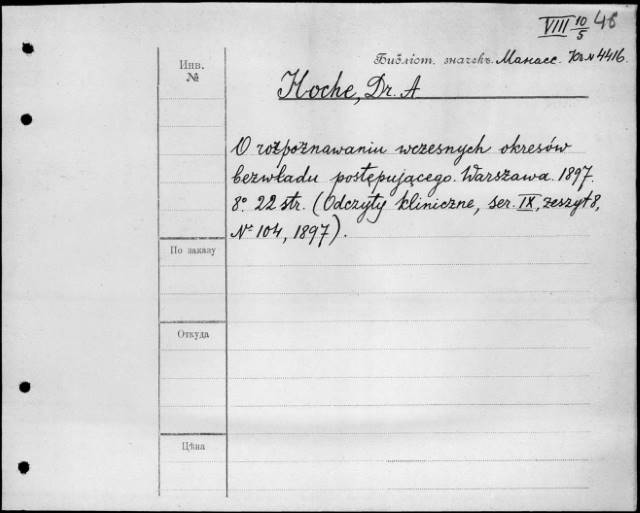 VIII 10/5 46
Инв. №
Библіот. значекъ. Манасс. Кн № 4416.
Hoche, Dr. A
O rozpoznawaniu wczesnych okresów
bezwładu postępującego. Warszawa. 1897.
8° 22 str. (Odczyty kliniczne, ser. IX, zeszyt 8,
№ 104, 1897).
По заказу
Откуда
Цѣна